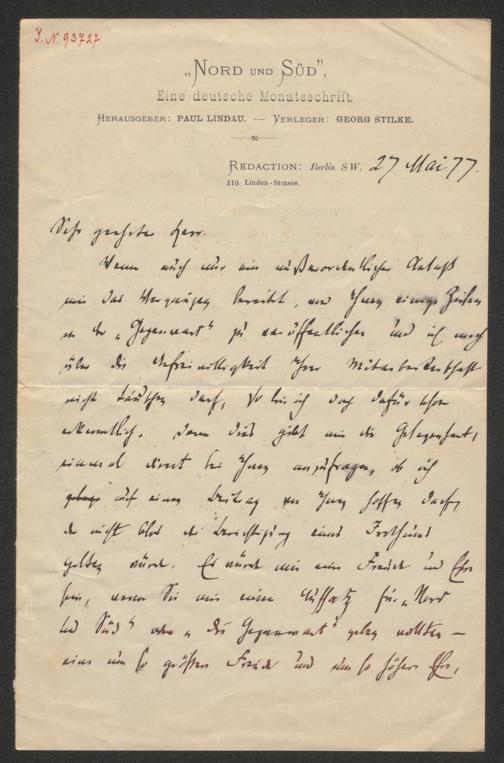 J. N. 93727
„Nord und Süd“,
Eine deutsche Monatsschrift.
Herausgeber: Paul Lindau. — Verleger: Georg Stilke.
Redaction: Berlin S W. 27 Mai 77.
110. Linden-Strasse.
Sehr geehrter Herr.
Wenn auch nur ein außerordentlicher Anlaß
mir das Vergnügen bereitet, von Ihnen einige Zeilen
in der „Gegenwart“ zu veröffentlichen und ich mich
über die Unfreiwilligkeit Ihrer Mitarbeiterschaft
nicht täuschen darf, so bin ich doch dafür schon
erkenntlich. Denn dies gibt mir die Gelegenheit,
einmal direct bei Ihnen anzufragen, ob ich
auf einen Beitrag von Ihnen hoffen darf,
der nicht blos der Berichtigung eines Irrthums
gelten würde. Es würde mir eine Freude und Ehre
sein, wenn Sie mir einen Aufsatz für „Nord
und Süd“ oder „die Gegenwart“ geben wollten —
eine um so größere Freude und um so höhere Ehre,